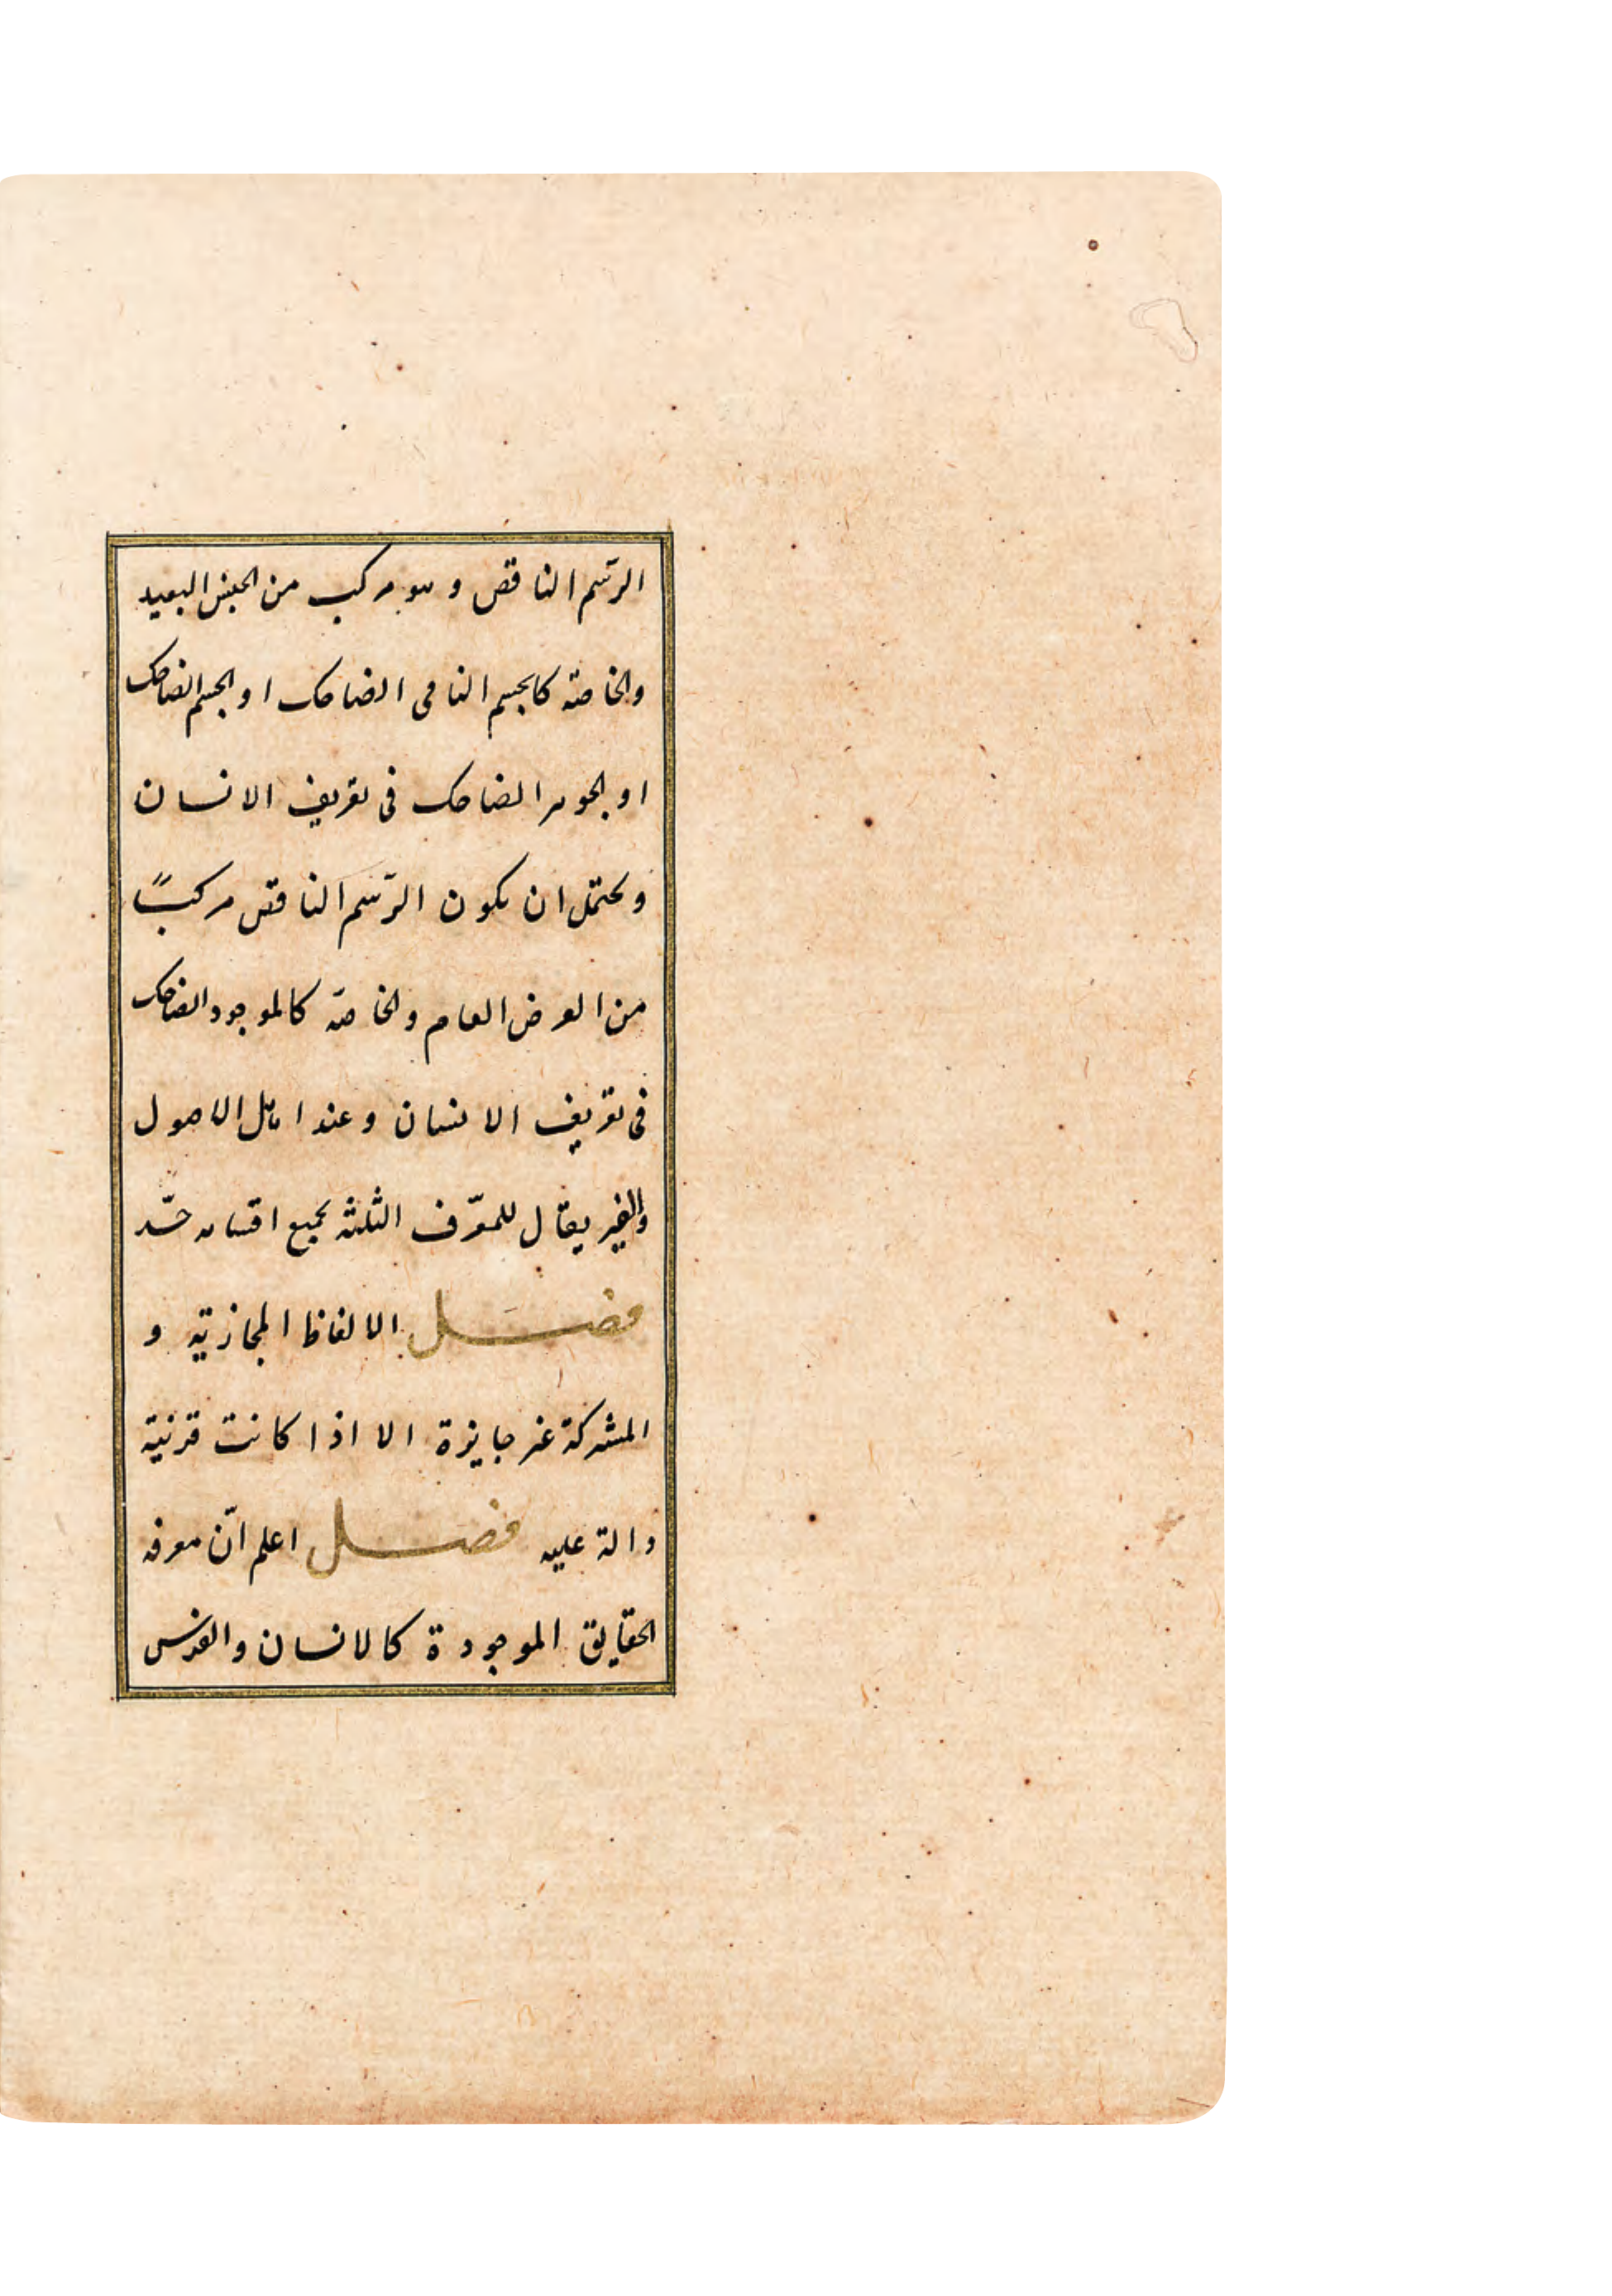 الرّسم الناقص وهو مركب من الجنس البعيد
والخاصّة كالجسم النامى الضاحك او الجسم الضاحك
او الجوهر الضاحك فى تعريف الانسان
ويحتمل ان يكون الرّسم الناقص مركباً
من العرض العام والخاصّة كالموجود الضاحك
فى تعريف الانسان وعند اهل الاصول
يقال للمعرّف الثلثة بجميع اقسامه حدّ
فصل الالفاظ المجازيّة و
المشتركة غير جايزة الا اذا كانت قرنية
دالة عليه فصل اعلم انّ معرفه
الحقايق الموجودة كالانسان والفرس